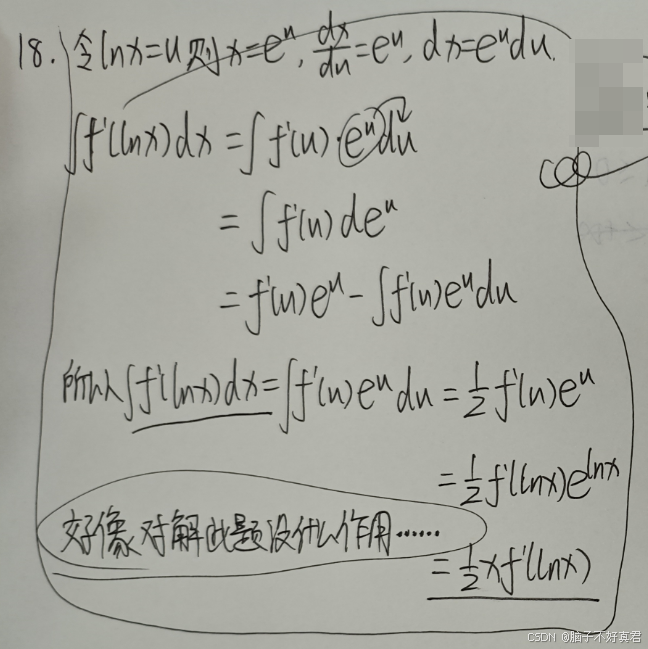 18. 令lnx=u则x=e^u, dx/du=e^u, dx=e^u du.
∫f'(lnx)dx=∫f'(u)·e^u du
=∫f'(u)de^u
=f'(u)e^u-∫f'(u)e^u du
所以∫f'(lnx)dx=∫f'(u)e^u du=1/2 f'(u)e^u
=1/2 f'(lnx)e^lnx
好像对解此题没什么作用……
=1/2 xf'(lnx)
CSDN @脑子不好真君